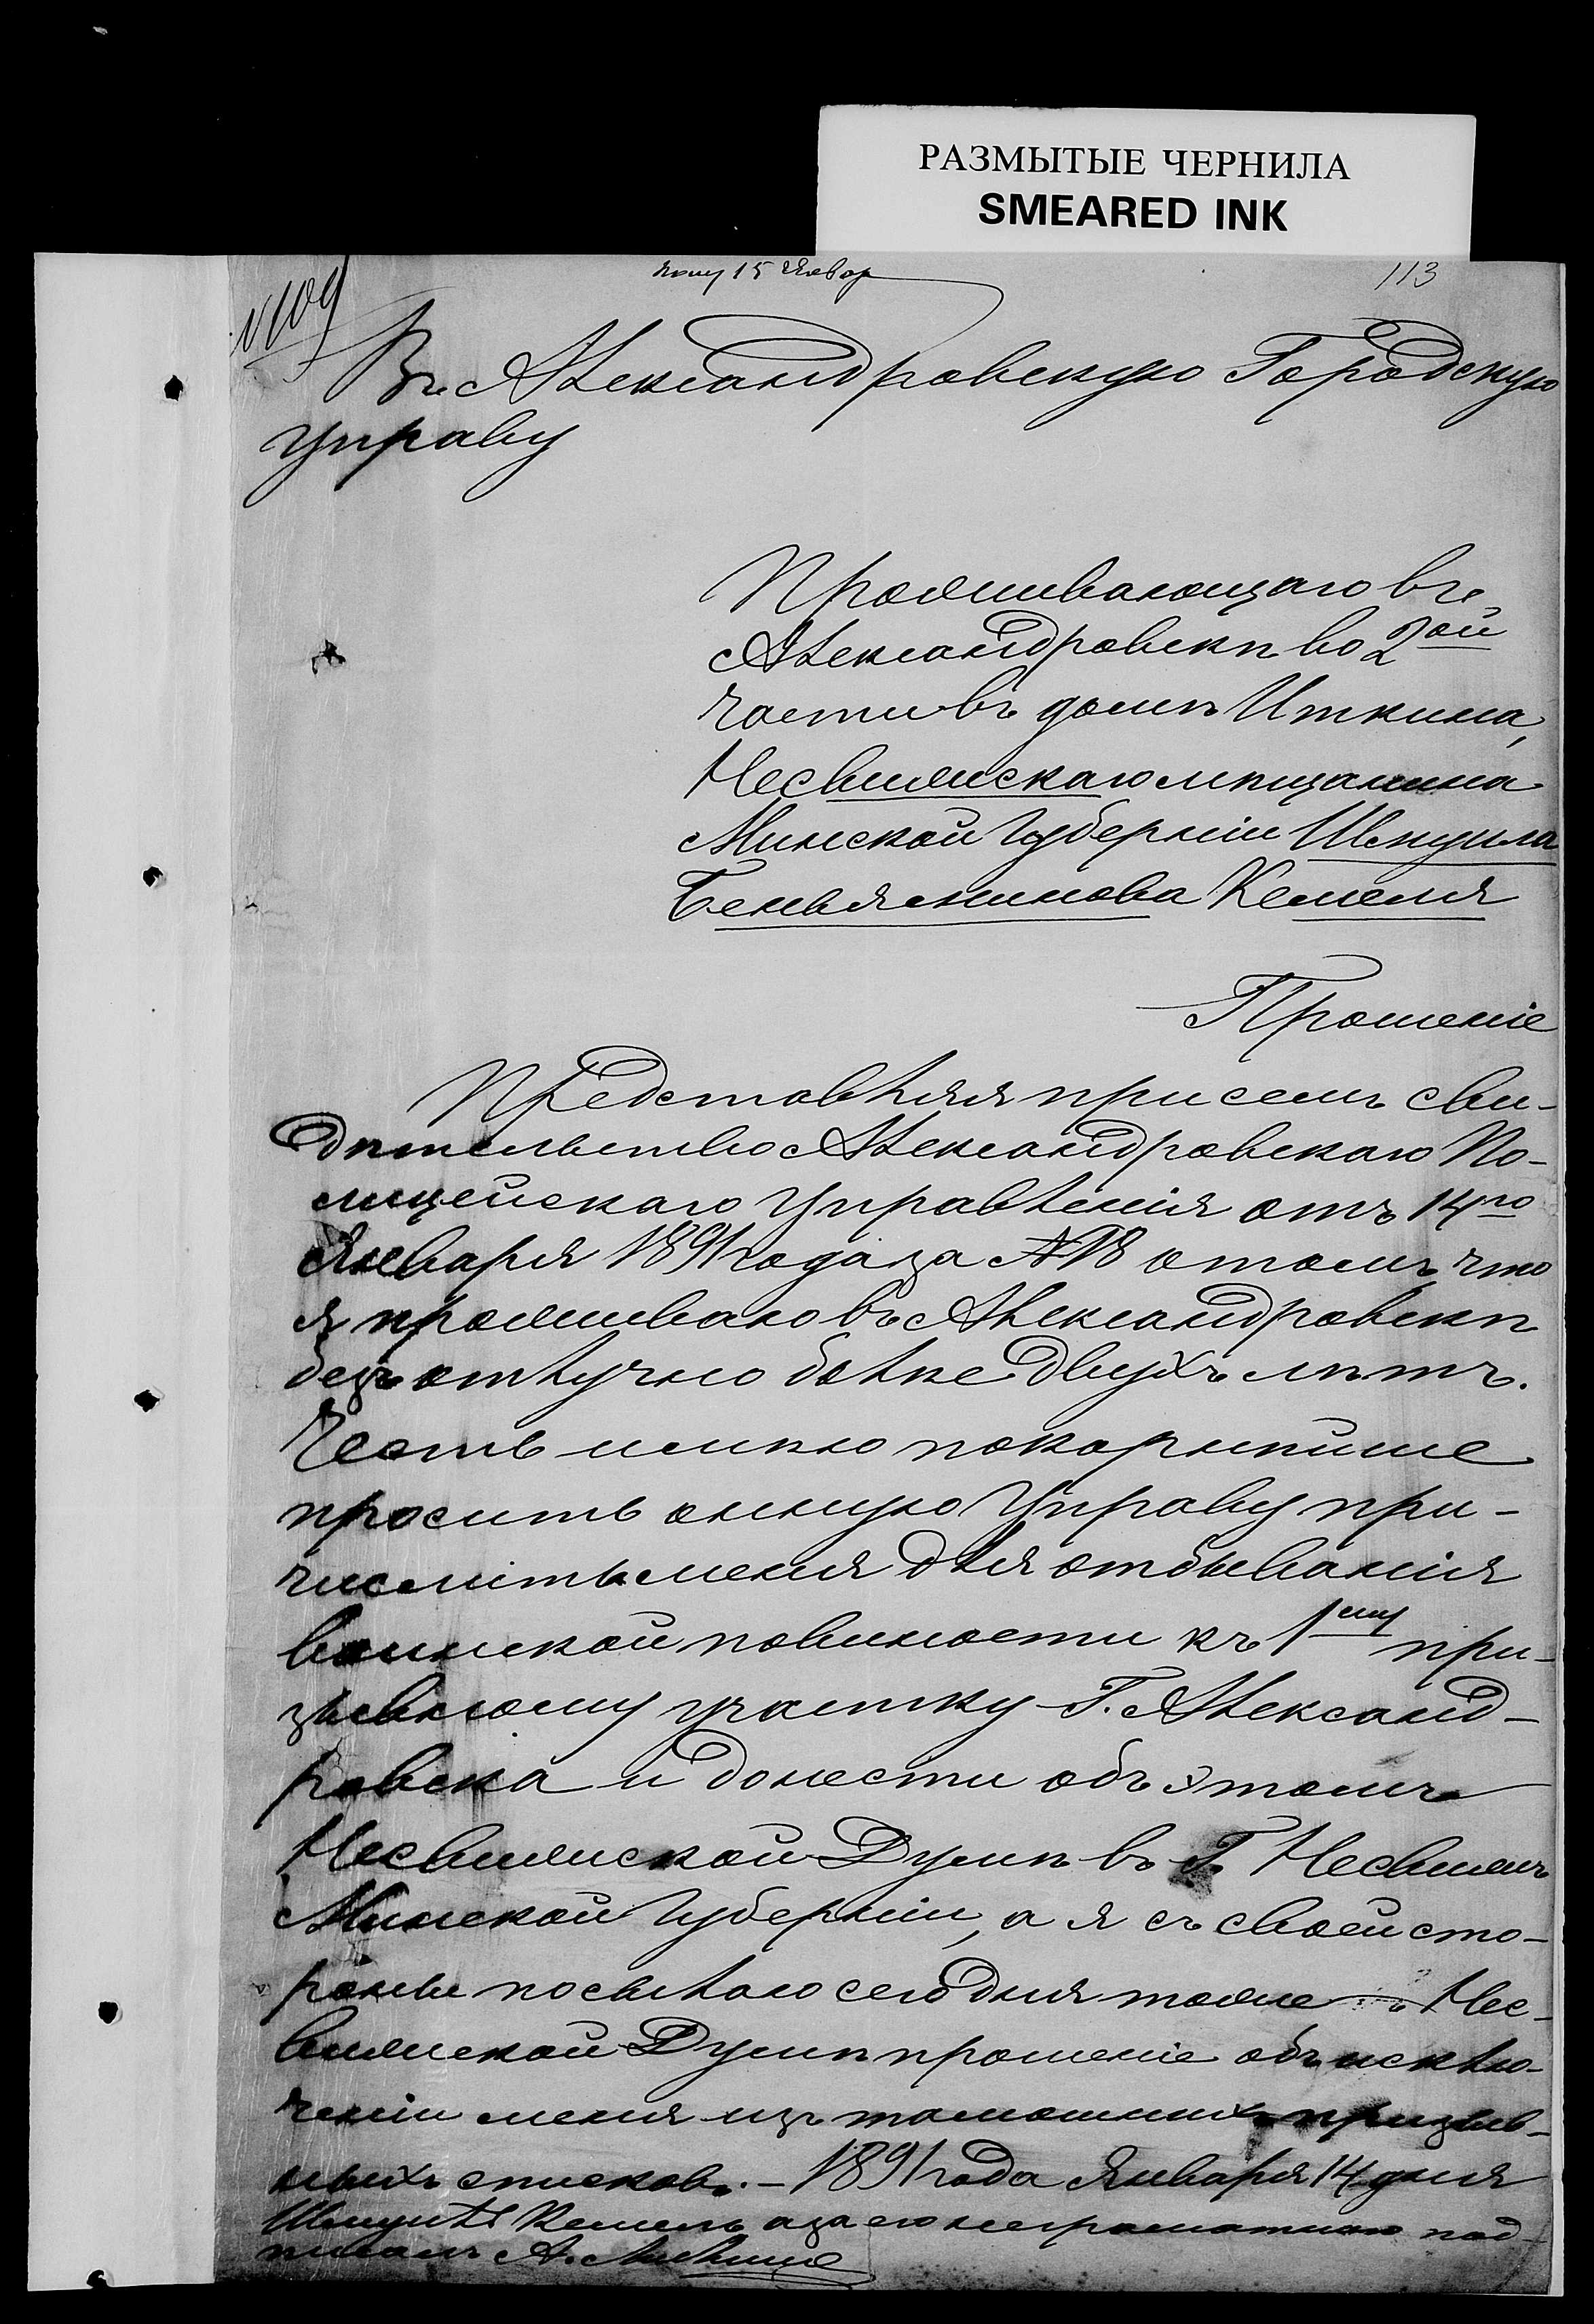 РАЗМЫТЫЕ ЧЕРНИЛА
SMEARED INK
15 Январ
113
№109
Въ Александровскую Городскую
Управу
Проживающаго въ г.
Александровскѣ во 2ой
части въ домѣ Иткина,
Несвижскаго мѣщанина
Минской Губерніи Шмуила
Беньяминова Кемеля
Прошеніе
Представляя при семъ сви-
дѣтельство Александровскаго По-
лицейскаго Управленія отъ 14го
Января 1891 года за №18 о томъ, что
я проживаю въ Александровскѣ
безъотлучно болѣе двухъ лѣтъ.
Честь имѣю покорнѣйше
просить онную Управу при-
числить меня для отбыванія
воинской повиности къ 1му при-
зывному участку Г. Александ-
ровска и донести объ этомъ
Несвижской Думѣ въ Г. Несвижъ
Минской Губерніи, а я съ своей сто-
роны посылаю сегодня тоже Нес-
вижской Думѣ прошеніе объ исклю-
ченіи меня изъ тамошнихъ призыв-
ныхъ списковъ. - 1891 года Января 14 дня
Шмуилъ Кемель а за его неграматност под-
писалъ А.